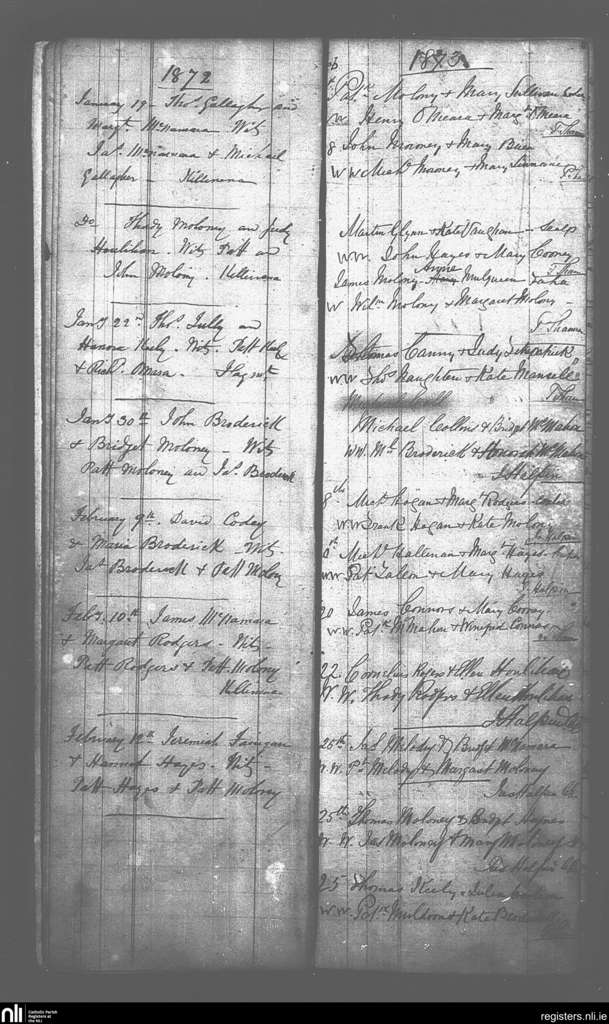 1872
January 19 Thos. Gallagher and
Margt. McNamara Wits
Jas. McNamara & Michael
Gallagher - Killinena
Do Thady Moloney and Judy
Houlihan. Wits Patt and
John Molony. Killinena
Jany 22nd Thos. Tully and
Hanora Keely. Wits. Patt Keely
& Richd. Omara.
Jany 30th John Broderick
& Bridget Moloney - Wits
Patt Moloney and Js. Broderick
February 9th. David Codey
& Maria Broderick - Wits.
Jas Broderick & Patt Molony
Feby. 10th. James McNamara
& Margaret Rodgers - Wits -
Patt Rodgers & Patt Molony
Killinena
February Jeremiah
& Hannah Hayes - Wits -
Patt Hayes & Patt Moloney
1873
Patk Molony & Mary Sullivan
W Henry O'Meara & Margt O'Meara
8 John Mooney & Mary
W W Michl Mooney & Mary
Martin Glynn & Kate Vaughan -
W W. John Hayes & Mary Cooney
James Molony Anne Mulqueen
W Willm Molony & Margaret Molony -
Thomas Canny & Judy Fitzpatrick
W W Thos Naughten & Kate Mansell
Michael Collins & Bridget McMahon
W W. Ml. Broderick & Honorah McMahon
J Halpin
8th Michl Hogan & Margt Rodgers
W W Frank Hogan & Kate Molony
J. Halpin
Michl Halleman & Margt Hayes
W W Pat & Mary Hayes
J Halpin
20 James Connors & Mary Cooney
W W. Patk McMahon & Winefred Connors
22 Cornelius Rogers & Ellen Houlihan
W. W. Thady Rodgers & Ellen Houlihan
J Halpin CC
25th Jas Melody & Bridget McNamara
W W Pt Melody & Margaret Molony
Jas Halpin CC.
25th Thomas Moloney & Bridget Haynes
W W Jas Moloney & Mary Moloney
Jas Halpin CC
25 Thomas Kiely & Julia
W W. Patk Muldoon & Kate
nli
Catholic Parish
Registers at
the NLI
registers.nli.ie